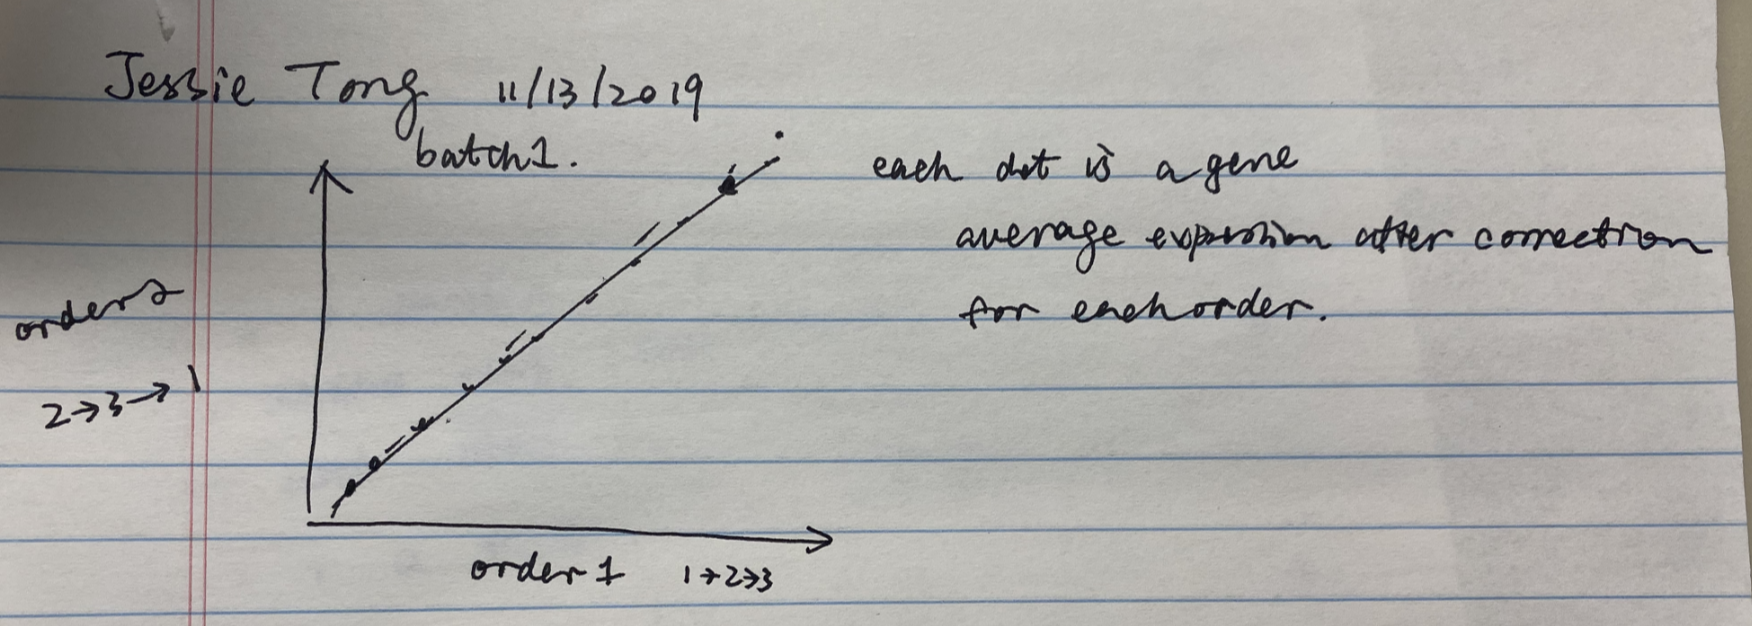 Jessie Tong 11/13/2019
batch1.
each dot is a gene
average expression after correction
for each order.
order2
2→3→1
order1 1→2→3